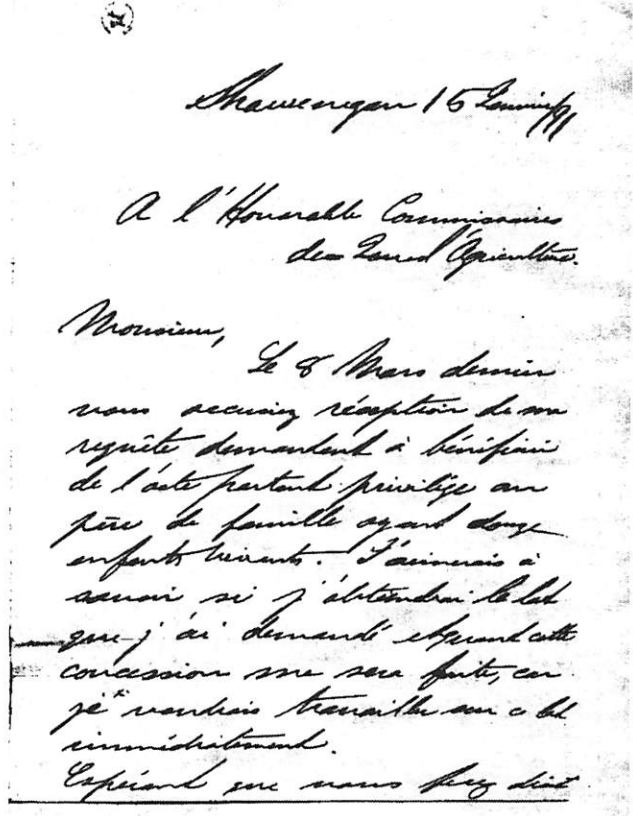 Shawenegan 15 Janvier/91
A l'Honorable Commissaires
des Terres l'Agriculture.
Monsieur,
Le 8 Mars dernier
vous accusiez réception de ma
requête demandant à bénéficier
de l'acte portant privilège au
père de famille ayant douze
enfants vivants. J'aimerais à
savoir si j'obtiendrai le lot
que j'ai demandé et quand cette
concession me sera faite, car
je voudrais travailler sur ce lot
immédiatement.
Espérant que vous ferez droit